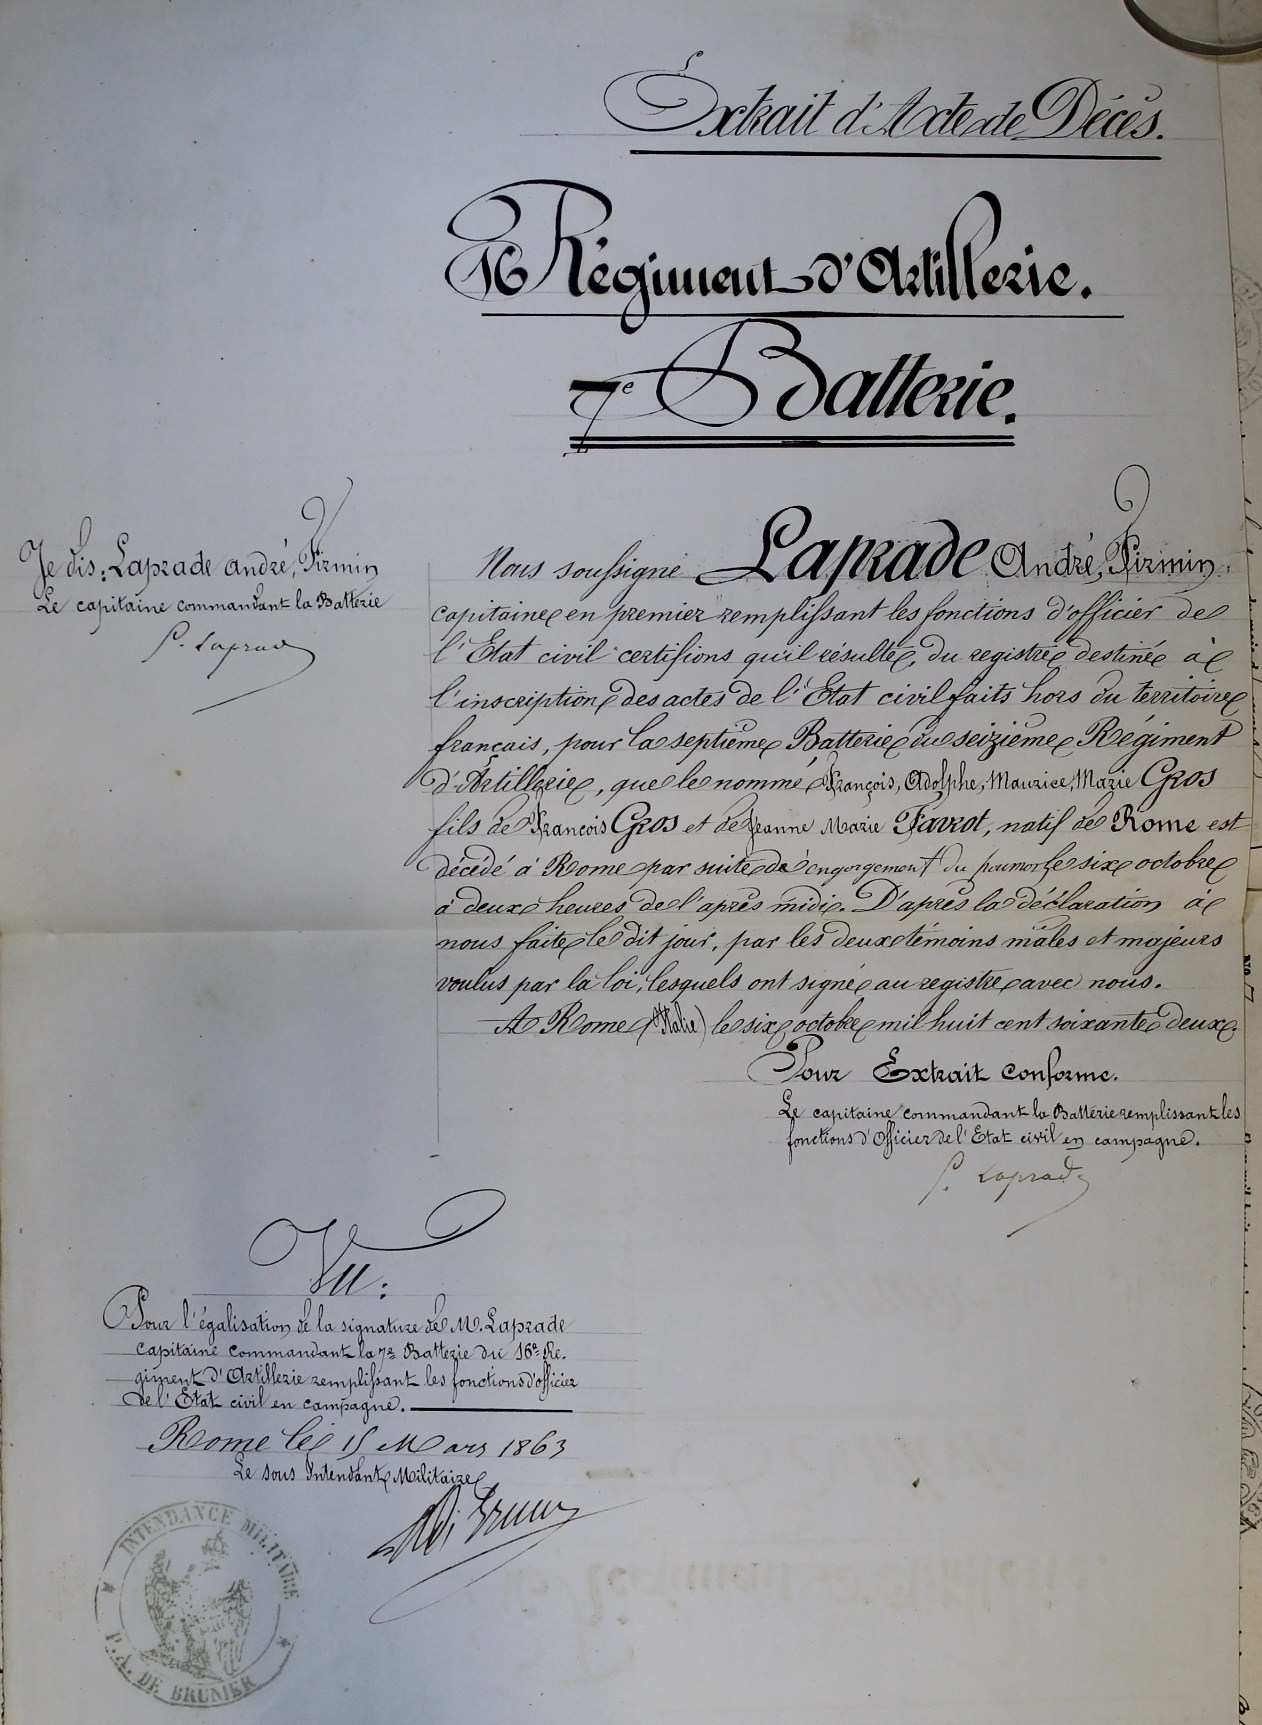 Extrait d'Acte de Décès.
16 Régiment d'Artillerie.
7e Batterie.
Je dis: Laprade André, Firmin
Le capitaine commandant la Batterie
F. Laprade
Nous soussigné Laprade André, Firmin,
capitaine en premier remplissant les fonctions d'officier de
l'Etat civil certifions qu'il résulte, du registre destiné à
l'inscription des actes de l'Etat civil faits hors du territoire
français, pour la septième Batterie du seizième Régiment
d'Artillerie, que le nommé François, Adolphe, Maurice, Marie Gros
fils de François Gros et de Jeanne Marie Favrot, natif de Rome est
décédé à Rome par suite de engorgement du poumon le six octobre
à deux heures de l'après midi. D'après la déclaration à
nous faite le dit jour, par les deux témoins mâles et majeurs
voulus par la loi, lesquels ont signé au registre avec nous.
A Rome (Italie) le six octobre mil huit cent soixante deux.
Pour Extrait conforme.
Le capitaine commandant la Batterie remplissant les
fonctions d'Officier de l'Etat civil en campagne.
F. Laprade
Vu:
Pour l'égalisation de la signature de M. Laprade
capitaine commandant la 7e Batterie du 16e Ré-
giment d'Artillerie remplissant les fonctions d'officier
de l'Etat civil en campagne.
Rome le 15 Mars 1863
Le sous Intendant Militaire
INTENDANCE MILITAIRE
P. A. DE BRUNIER